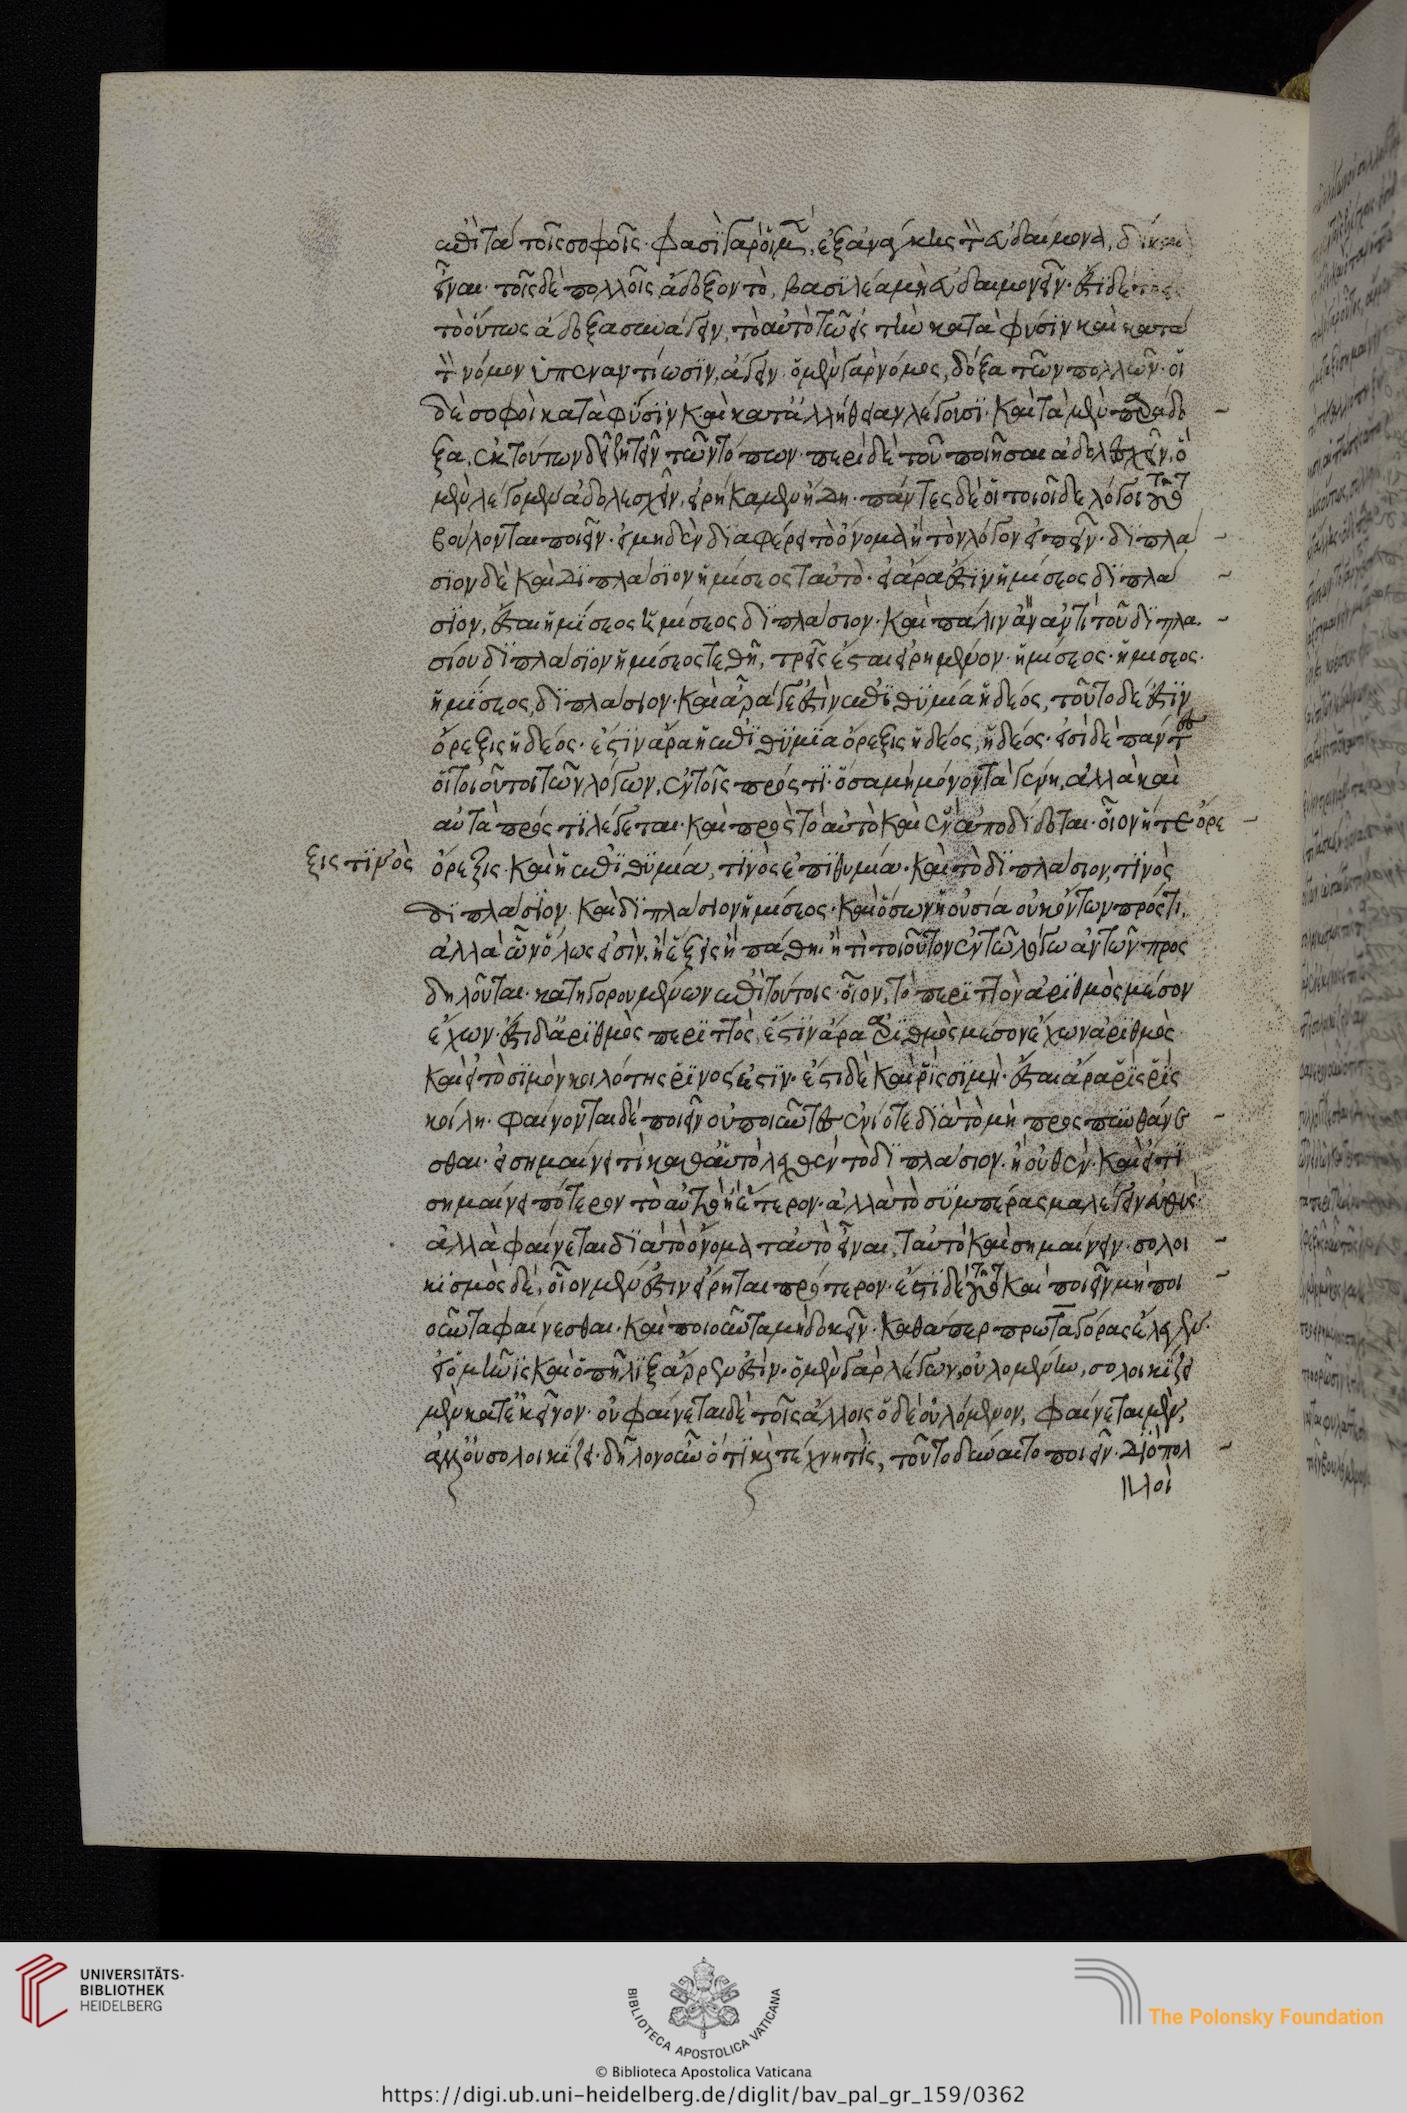 ἐπὶ τὰ τοῖς σοφοῖς· φασὶ γὰρ οἱ μὲν, ἐξανάγκης τὸν εὐδαίμονα, δίκαιον
εἶναι· τοῖς δὲ πολλοῖς ἄδοξον τὸ, βασιλέα μὴ εὐδαιμονεῖν· ἔστι δὲ
τὸ οὕτως ἄδοξα συνάγειν, τὸ αὐτὸ τῶ εἰς τὴν κατὰ φύσιν καὶ κατὰ
τὸν νόμον ὑπεναντίωσιν, ἄγειν· ὁ μὲν γὰρ νόμος, δόξα τῶν πολλῶν· οἱ
δὲ σοφοὶ κατὰ φύσιν καὶ κατ' ἀλλήθειαν λέγουσι· καὶ τὰ μὲν παράδο
ξα, ἐκ τούτων δεῖ ζητεῖν τῶν τόπων· περὶ δὲ τοῦ ποιῆσαι ἀδολεσχεῖν, ὃ
μὲν λέγομεν ἀδολεσχεῖν, εἰρήκαμεν ἤδη· πάντες δὲ οἱ τοιοίδε λόγοι τοῦτο
βούλονται ποιεῖν· εἰ μηδὲν διαφέρει τὸ ὄνομα ἢ τὸν λόγον εἰπεῖν· διπλά
σιον δὲ καὶ διπλάσιον ἡμίσεος ταὐτό· εἰ ἄρα ἐστὶν ἡμίσεος διπλά
σιον, ἔσται ἡμίσεος ἡμίσεος διπλάσιον· καὶ πάλιν ἂν ἀντὶ τοῦ διπλα
σίου διπλάσιον ἡμίσεος τεθῆ, τρεῖς ἔσται εἰρημένον· ἡμίσεος· ἡμίσεος·
ἡμίσεος, διπλάσιον· καὶ ἆρά γε ἐστὶν ἐπιθυμία ἡδέος, τοῦτο δέ ἐστιν
ὄρεξις ἡδέος· ἔστιν ἄρα ἡ ἐπιθυμία ὄρεξις ἡδέος, ἡδέος· εἰσὶ δὲ πάντες
οἱ τοιοῦτοι τῶν λόγων, ἐν τοῖς πρός τι· ὅσα μὴ μόνον τὰ γένη, ἀλλὰ καὶ
αὐτὰ πρός τι λέγεται· καὶ πρὸς τὸ αὐτὸ καὶ ἓν ἀποδίδοται· οἷον ἥ τε ὄρε
ξις τινὸς ὄρεξις· καὶ ἡ ἐπιθυμία, τινὸς ἐπιθυμία· καὶ τὸ διπλάσιον, τινὸς
διπλάσιον· καὶ διπλάσιον ἡμίσεος· καὶ ὅσων ἡ οὐσία οὐκ ὄντων πρός τι,
ἀλλὰ ὧν ὅλως εἰσὶν, ἢ ἕξεις ἢ πάθη· ἤ τι τοιοῦτον ἐν τῶ λόγω αὐτῶν προς
δηλοῦται· κατηγορουμένων ἐπὶ τούτοις· οἷον, τὸ περιττὸν ἀριθμὸς μέσον
ἔχων· ἔστι δ' ἀριθμὸς περιττὸς, ἔστιν ἄρα ἀριθμὸς μέσον ἔχων ἀριθμὸς·
καὶ εἰ τὸ σιμὸν κοιλότης ῥινός ἐστιν· ἔστι δὲ καὶ ῥὶς σιμὴ· ἔσται ἄρα ῥὶς ῥὶς
κοίλη· φαίνονται δὲ ποιεῖν οὐ ποιοῦντες ἐνίοτε διὰ τὸ μὴ προσπυνθάνε
σθαι· εἰ σημαίνει τι καθ' αὑτὸ λεχθὲν τὸ διπλάσιον· ἢ οὐθέν· καὶ εἴ τι
σημαίνει πότερον τὸ αὐτὸ ἢ ἕτερον· ἀλλὰ τὸ συμπέρασμα λέγειν εὐθύς·
ἀλλὰ φαίνεται διὰ τὸ ὄνομα ταὐτὸ εἶναι, ταὐτὸ καὶ σημαίνειν· σολοι
κισμὸς δὲ, οἷον μέν ἐστιν εἴρηται πρότερον· ἔστι δὲ τοῦτο καὶ ποιεῖν μὴ ποι
οῦντα φαίνεσθαι· καὶ ποιοῦντα μὴ δοκεῖν· καθάπερ πρωταγόρας ἔλεγεν·
εἰ ὁ μῆνις καὶ ὁ πήληξ ἄρρεν ἐστίν· ὁ μὲν γὰρ λέγων, οὐλομένην, σολοικίζει
μὲν κατ' ἐκεῖνον· οὐ φαίνεται δὲ τοῖς ἄλλοις ὁ δὲ οὐλόμενον, φαίνεται μὲν,
ἀλλ' οὐ σολοικίζει· δῆλον οὖν ὅτι κἂν τέχνη τὶς, τοῦτο δύναιτο ποιεῖν· διὸ πολ
λοὶ
UNIVERSITÄTS-
BIBLIOTHEK
HEIDELBERG
BIBLIOTECA APOSTOLICA VATICANA
The Polonsky Foundation
© Biblioteca Apostolica Vaticana
https://digi.ub.uni-heidelberg.de/diglit/bav_pal_gr_159/0362